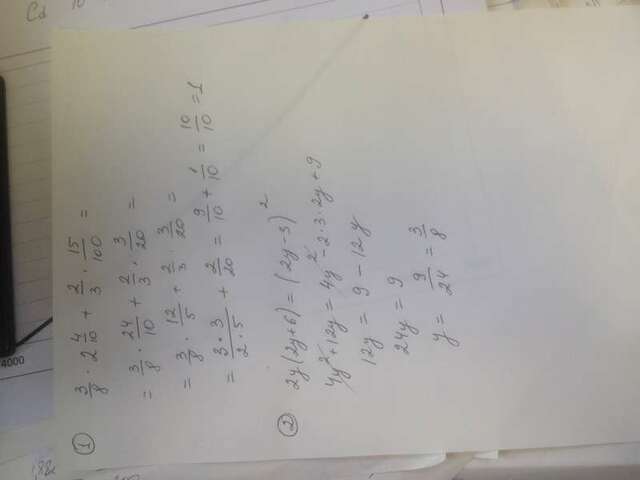 1 3/8 · 2 4/10 + 2/3 · 15/100 =
= 3/8 · 24/10 + 2/3 · 3/20 =
= 3/8 · 12/5 + 2/3 · 3/20 =
= 3·3/2·5 + 2/20 = 9/10 + 1/10 = 10/10 = 1
2 2y(2y+6) = (2y-3)²
4y²+12y = 4y²-2·3·2y+9
12y = 9 - 12y
24y = 9
y = 9/24 = 3/8
4000
Cd